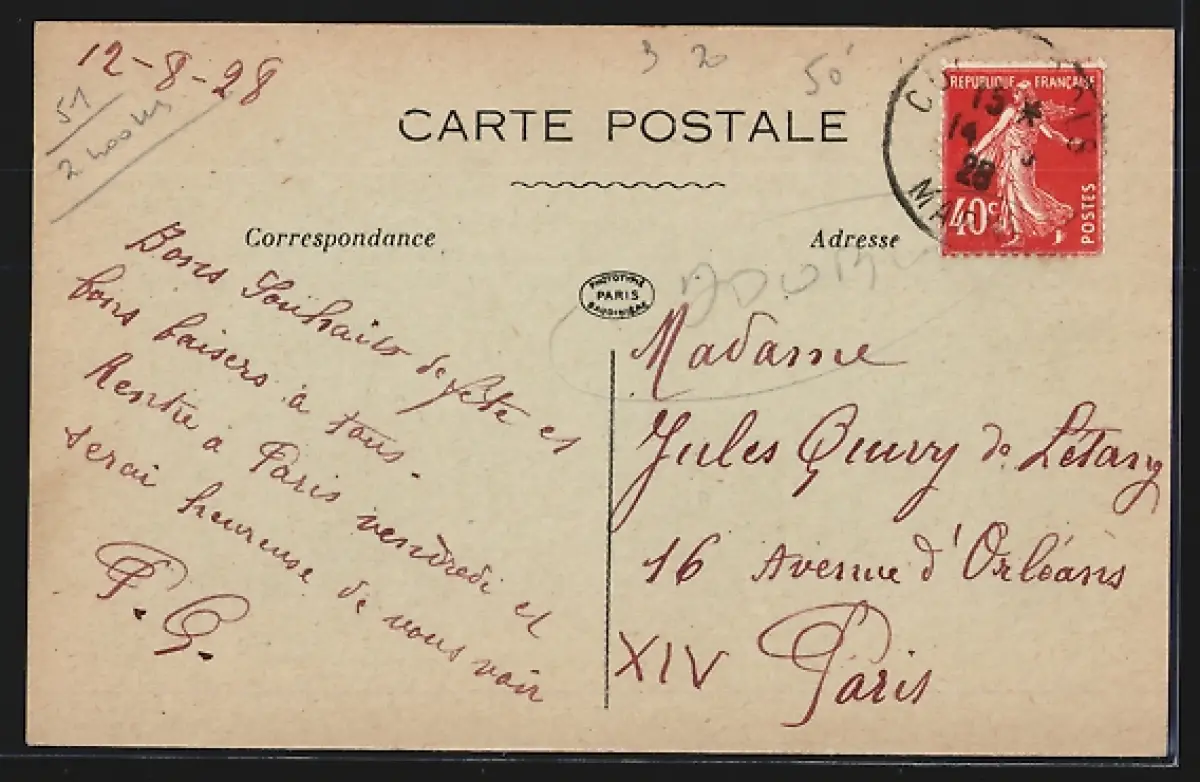 12-8-28
51
3 20
50
CARTE POSTALE
REPUBLIQUE FRANÇAISE
15 *
28
MA
40c
POSTES
Correspondance
Adresse
PHOTOTYPIE
PARIS
BAUDINIÈRE
Bons Souhaits de fête et
bons baisers à tous.
Rentre à Paris vendredi et
serai heureuse de vous voir
F. G.
Madame
Jules de Létang
16 Avenue d'Orléans
XIV Paris